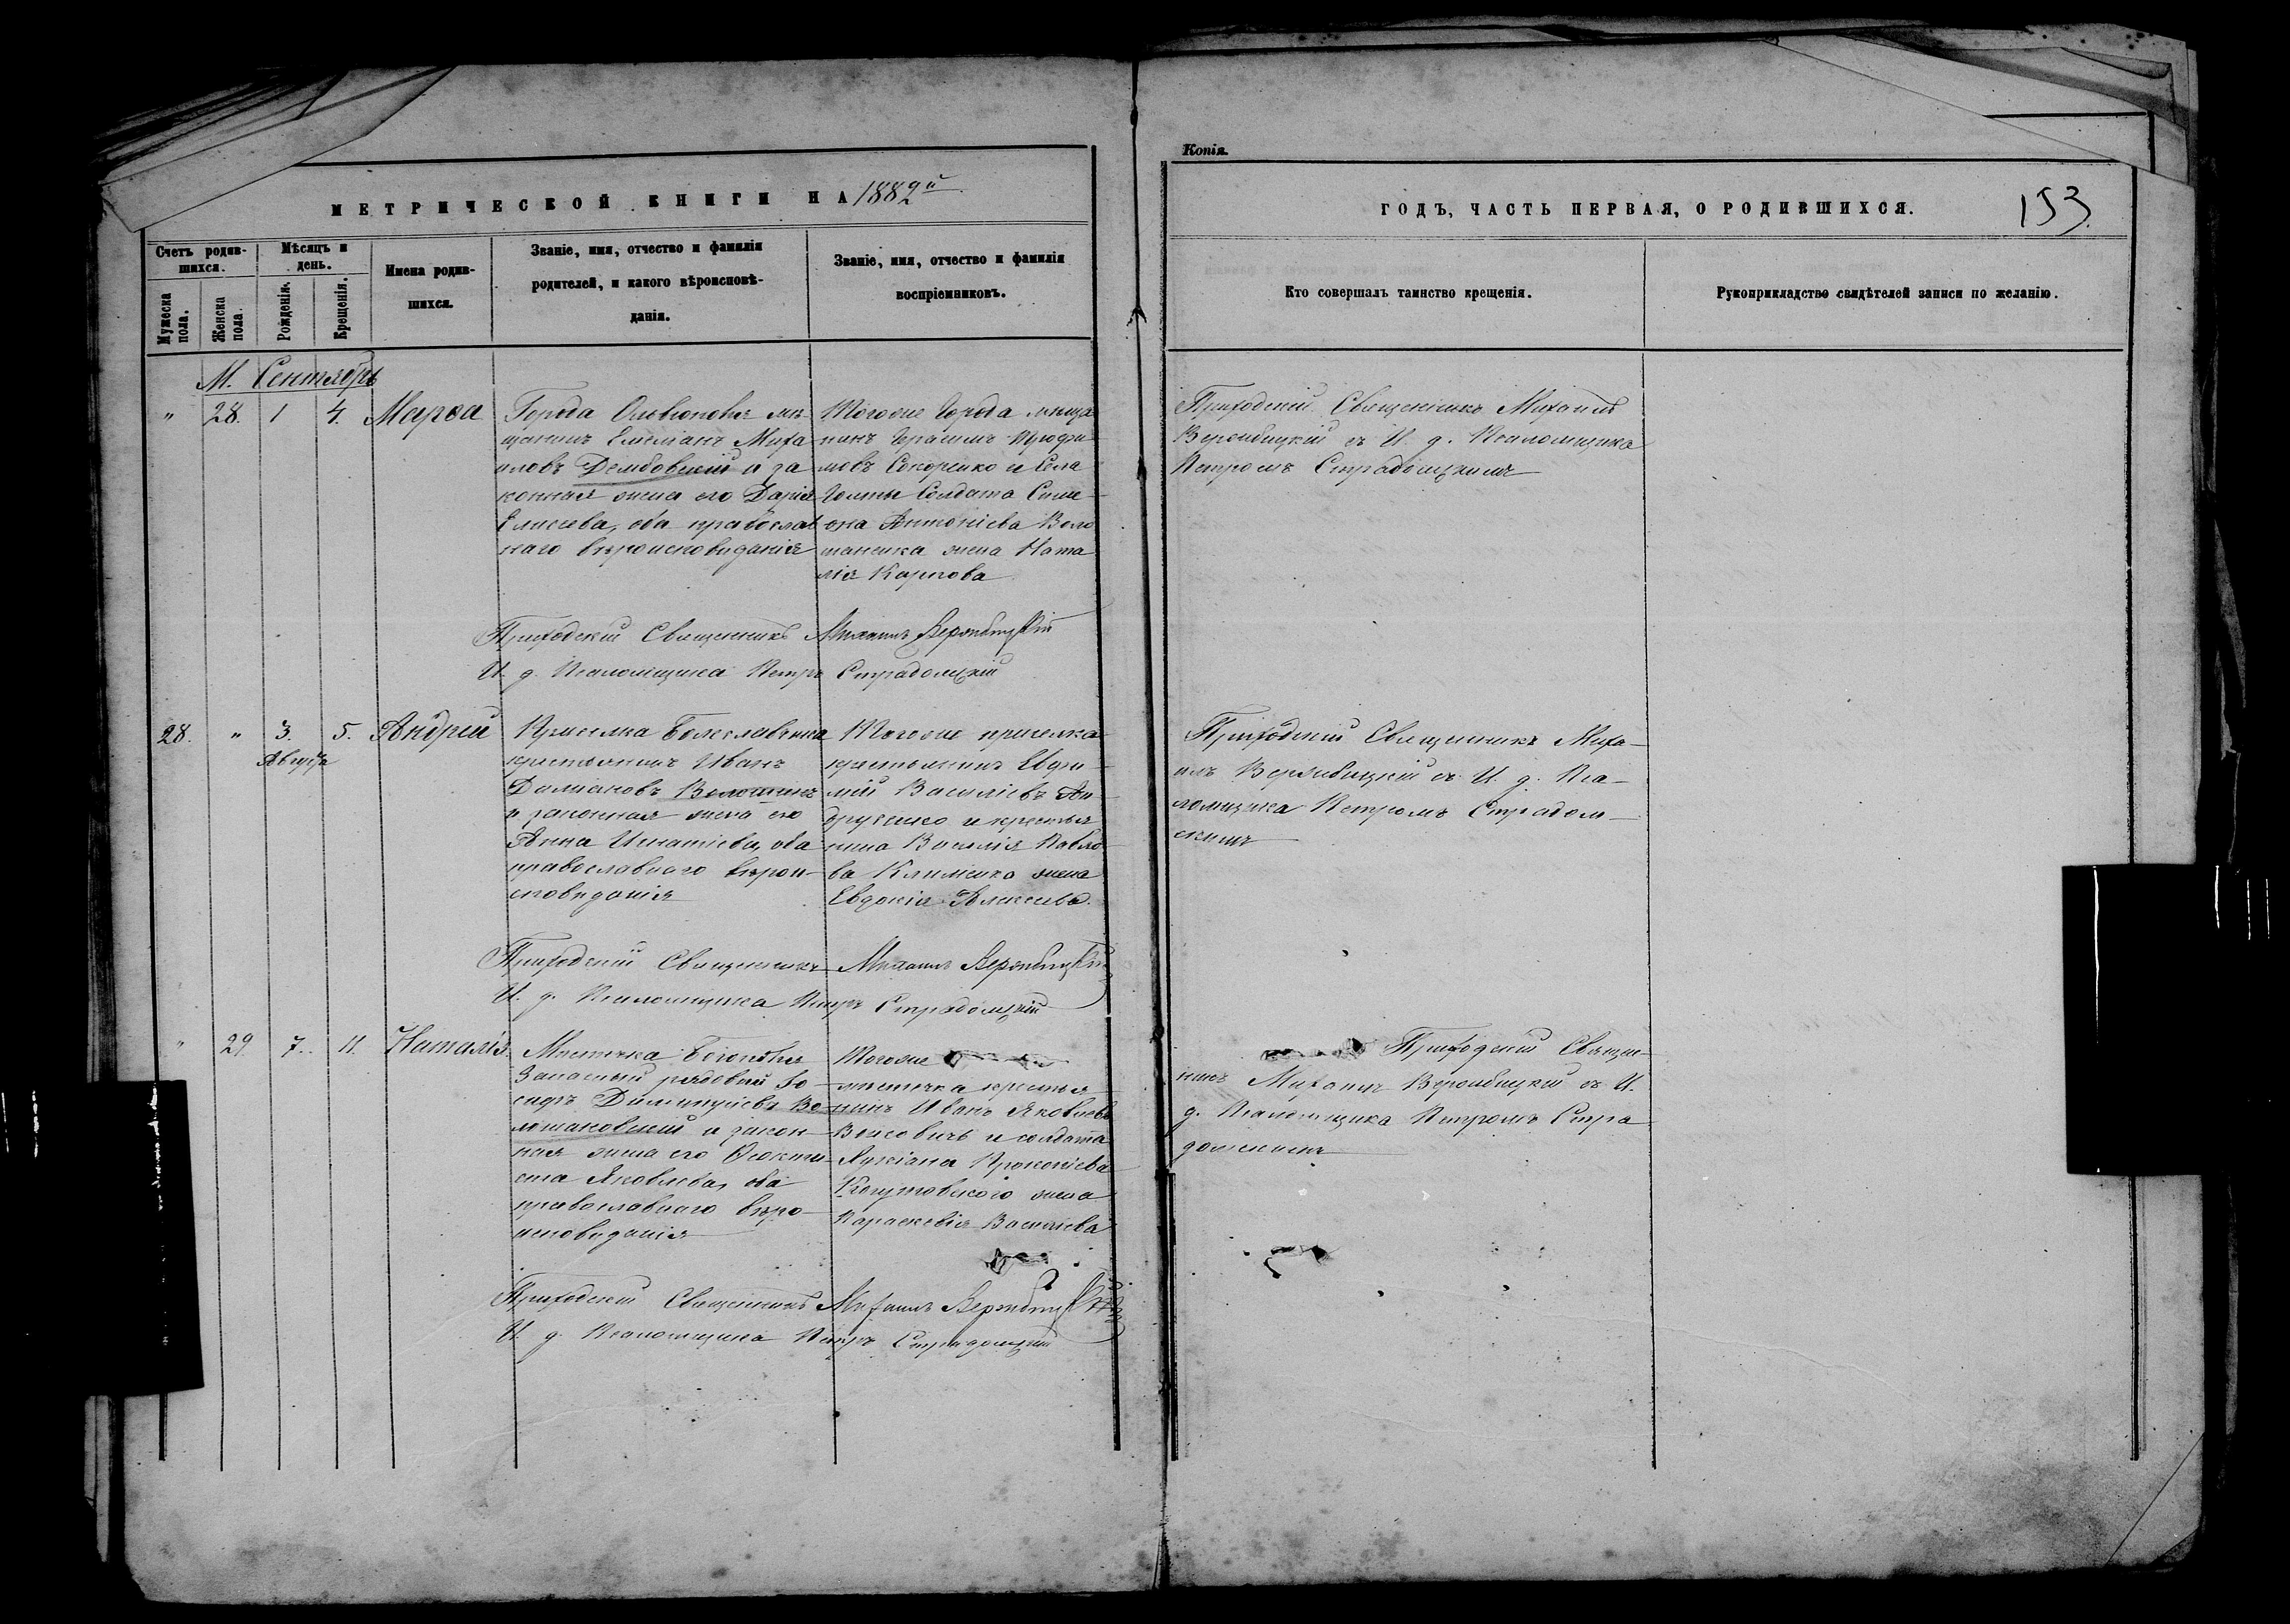 Копія.
МЕТРИЧЕСКОЙ КНИГИ НА 1882й
ГОДЪ, ЧАСТЬ ПЕРВАЯ, О РОДИВШИХСЯ.
153.
Счетъ родив-
шихся.
Мѣсяцъ и
день.
Мужеска
пола.
Женска
пола.
Рожденія.
Крещенія.
Имена родив-
шихся.
Званіе, имя, отчество и фамилія
родителей, и какого вѣроисповѣ-
данія.
Званіе, имя, отчество и фамилія
воспріемниковъ.
Кто совершалъ таинство крещенія.
Рукоприкладство свидѣтелей записи по желанію.
М. Сентябрь
" 28. 1 4. Марѳа
Города Ольвіополя мѣ
щанинъ Емиліанъ Миха
иловъ Дембовскій и за
конная жена его Дарія
Елисеева, оба православ
наго вѣроисповѣданія
Тогоже города мѣща
нинъ Герасимъ Трофи
мовъ и Села
Голты Солдата Симе-
она Антоніева Воло
жена Ната
лія Карпова
Приходскій Священникъ Михаилъ
Вержбицкій съ И. д. Псаломщика
Петромъ Страдомскимъ
Приходскій Священникъ Михаилъ Вержбицкій
И. д. Псаломщика Петръ Страдомскій
28. " 3. 5. Андрей
Августа
Приселка
крестьянинъ Иванъ
Даміановъ Волошинъ
и законная жена его
Анна Игнатіева, оба
православнаго вѣрои-
сповѣданія
Тогоже приселка
крестьянинъ Евфи-
мій Василіевъ Ан-
друсенко и крестья
нина Василія Павло
ва Клименко жена
Евдокія Алексѣева.
Приходскій Священникъ Миха-
илъ Вержбицкій съ И. д. Пса-
ломщика Петромъ Страдом-
скимъ
Приходскій Священникъ Михаилъ Вержбицкій
И. д. Псаломщика Петръ Страдомскій
" 29. 7. 11. Наталія.
Мѣстечка Богополя
Запасный рядовый Іо-
сифъ Димитріевъ Во-
лошановскій и закон-
ная жена его Ѳеокти-
ста Яковлева, оба
православнаго вѣро-
исповѣданія
Тогоже
мѣстечка крестья-
нинъ Иванъ Яковлевъ
Войковичъ и солдата
Лукіана Прокопіева
жена
Параскевія Василіева
Приходскій Священ-
никъ Михаилъ Вержбицкій съ И.
д. Псаломщика Петромъ Стра
домскимъ
Приходскій Священникъ Михаилъ Вержбицкій
И. д. Псаломщика Петръ Страдомскій